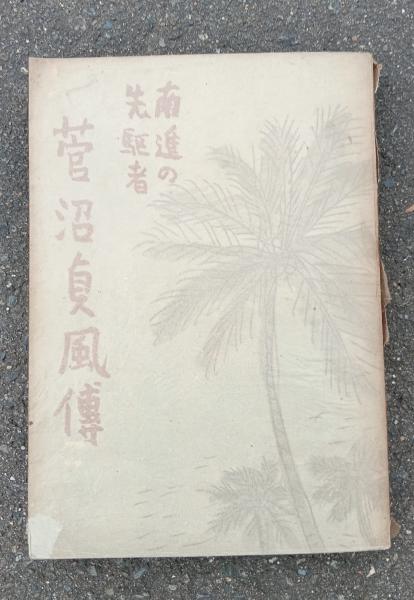 南進の
先駆者
菅沼貞風傳